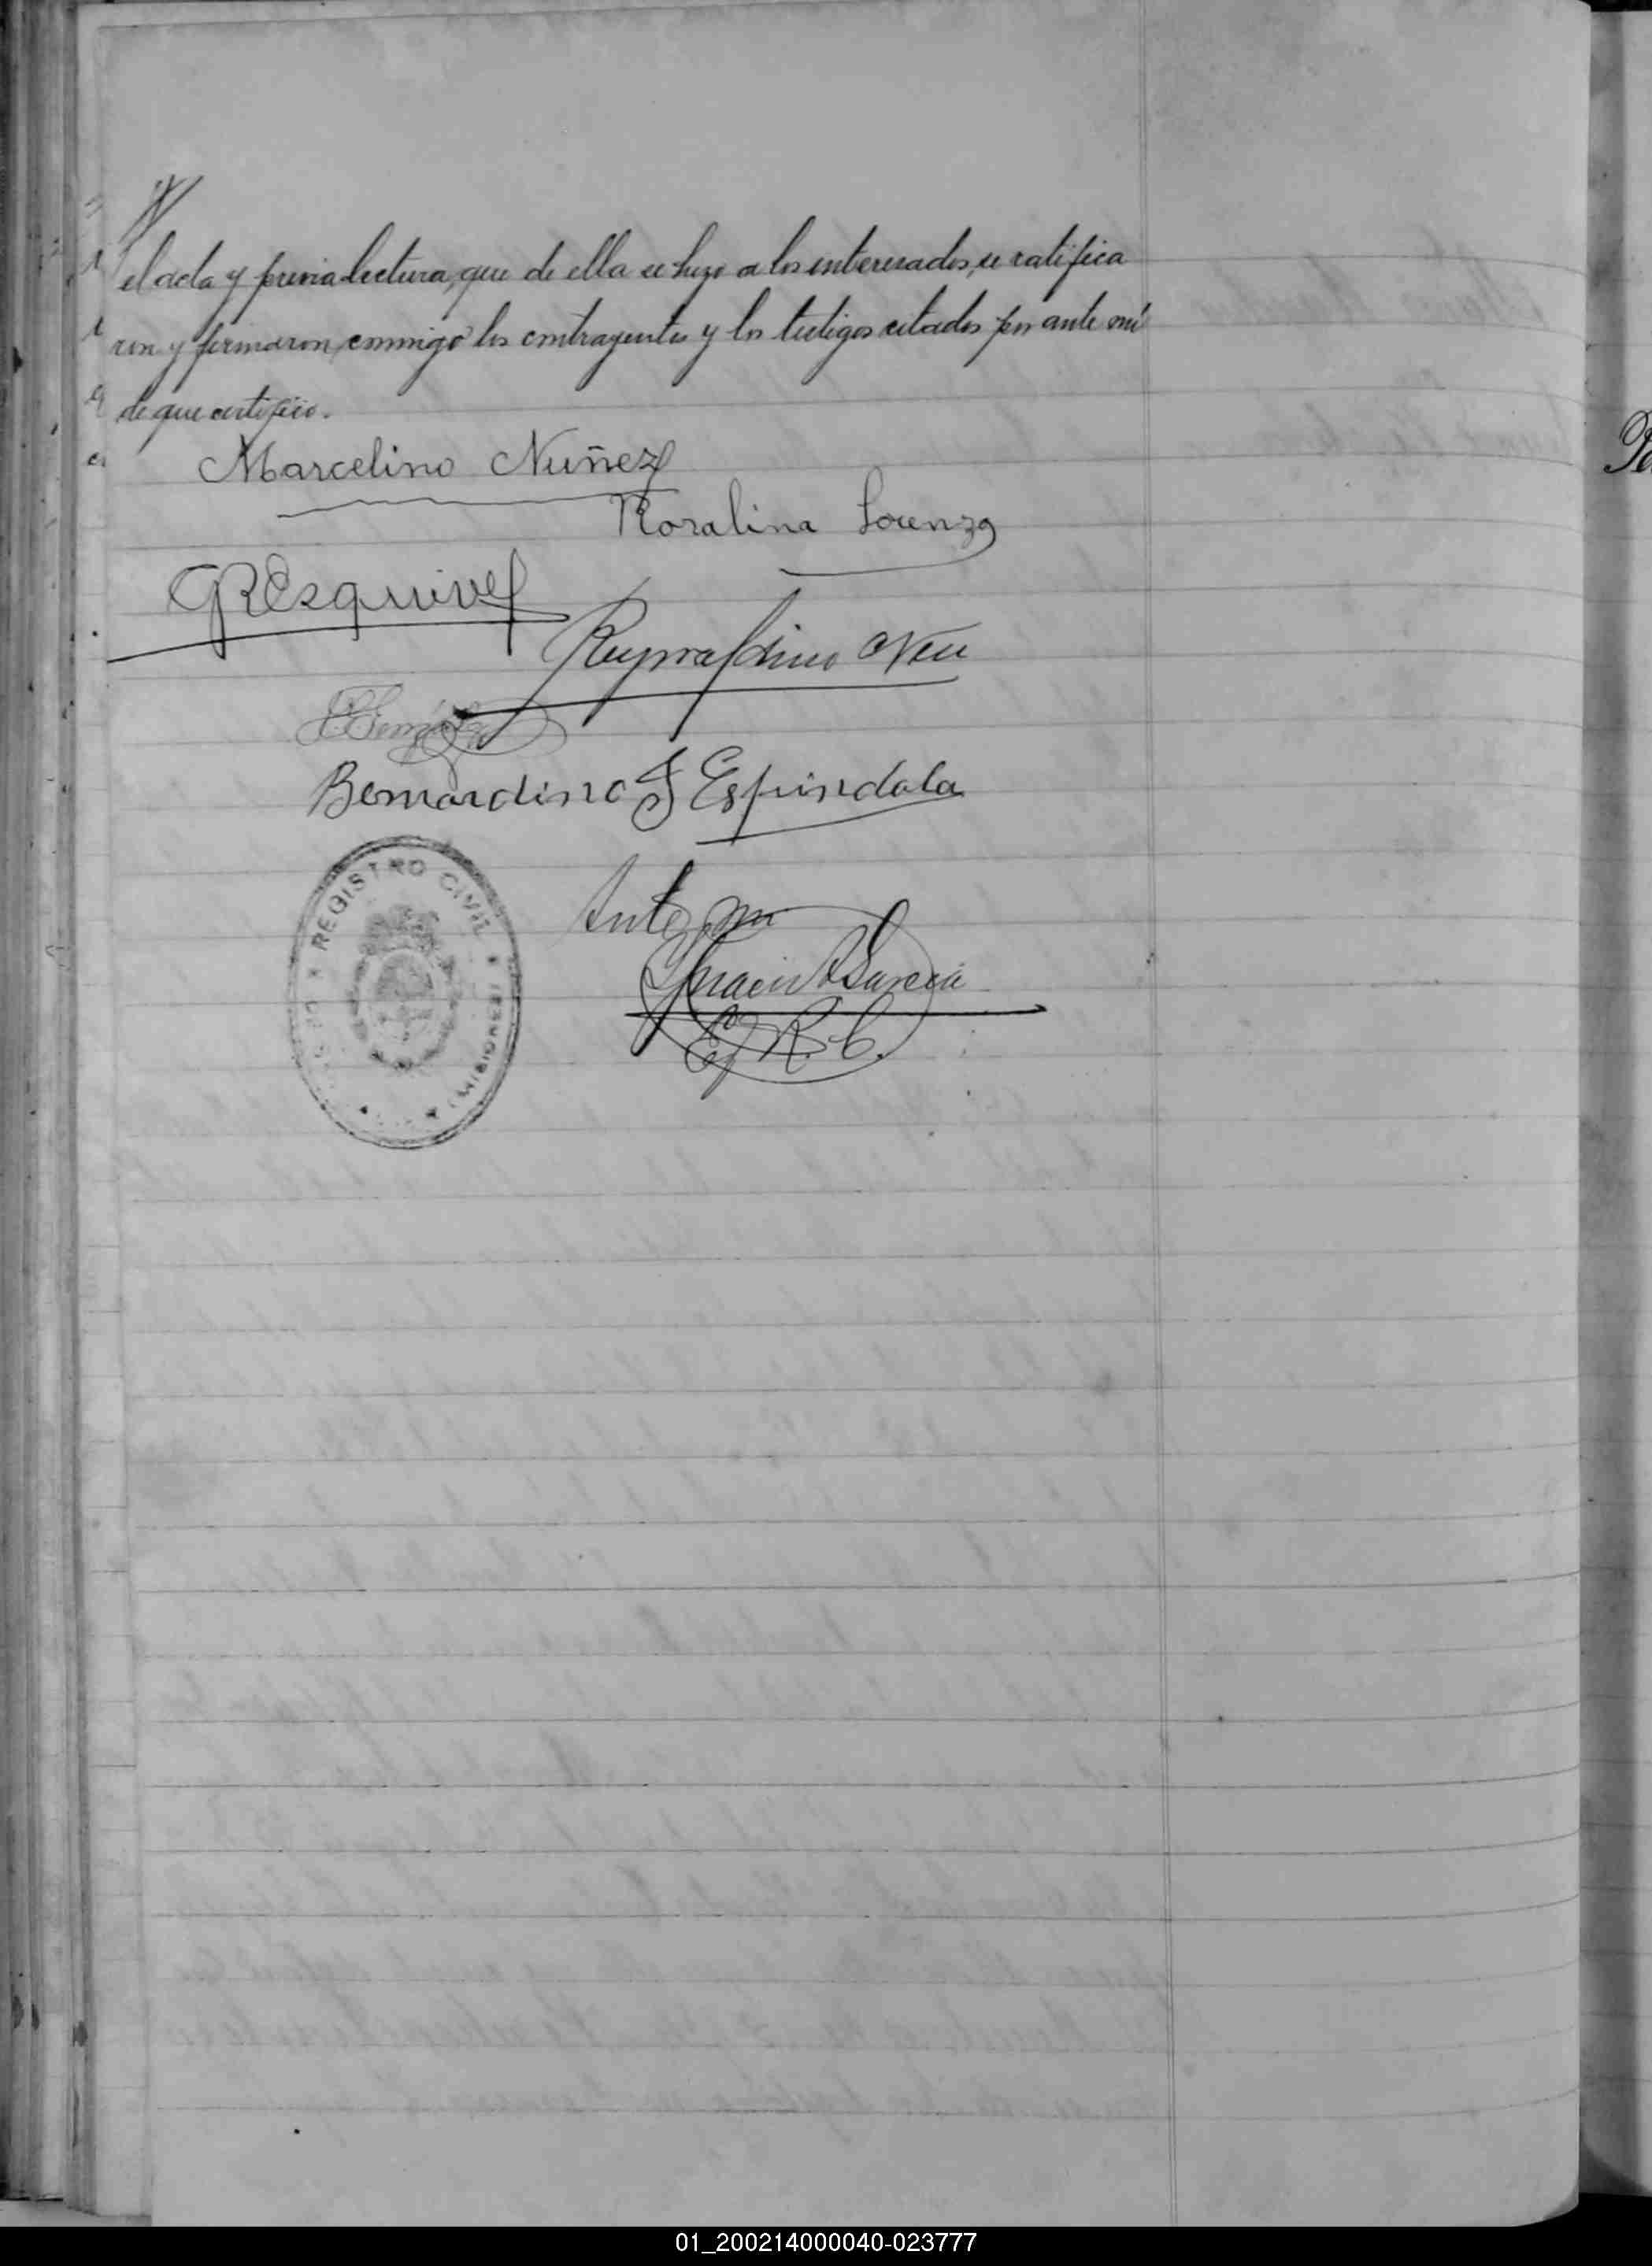 el acta y previa lectura, que de ella se hizo a los interesados, se ratifica
ron y firmaron conmigo los contrayentes y los testigos citados por ante mí
de que certifico.
Marcelino Nuñez
Rosalina Lorenzo
GREsquivel
Reynaldino Neu
Bernardino F Espindola
Ante mi
Ignacio A García
E. R. C.
REGISTRO CIVIL
(MISIONES)
01_200214000040-023777